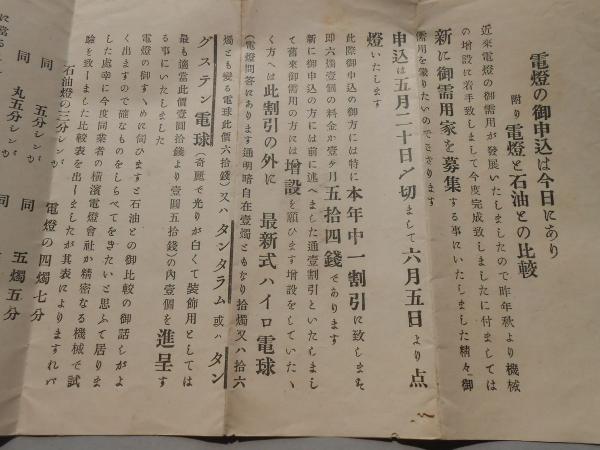 電燈の御申込は今日にあり
附り電燈と石油との比較
近來電燈の御需用が發展いたしましたので昨年秋より機械
の增設に着手致しまして今度完成致しましたに付ましては
新に御需用家を募集する事にいたしました精々御
需用を蒙りたいのでござります
申込は五月二十日〆切まして六月五日より点
燈いたします
此際御申込の御方には特に本年中一割引に致しまた
即六燭壹個の料金が壹ヶ月五拾四錢であります
新に御申込の方には前に述へました通壹割引といたしまし
て舊來御需用の方には增設を願ひます增設をしていたゞ
く方へは此割引の外に最新式ハイロ電球
(電燈問答にあります通明暗自在壹燭ともなり拾燭又ハ拾六
燭とも變る電球此價六拾錢)又ハタンタラム或ハタン
グステン電球(奇麗で光りが白くて裝飾用としては
最も適當此價壹圓拾錢より壹圓五拾錢)の內壹個を進呈す
る事にいたしました
電燈の御すゝめに伺ひますと石油との御比較の御話しがよ
く出ますので確なものをしらべてをきたいと思ふて居りま
した處幸に今度同業者の橫濱電燈會社か精密なる機械で試
驗を致しました比較表を出しましたが其表によりますれバ
石油燈の三分シンが 電燈の四燭七分
同 五分シンが 同 五燭五分
同 丸五分シンが 同